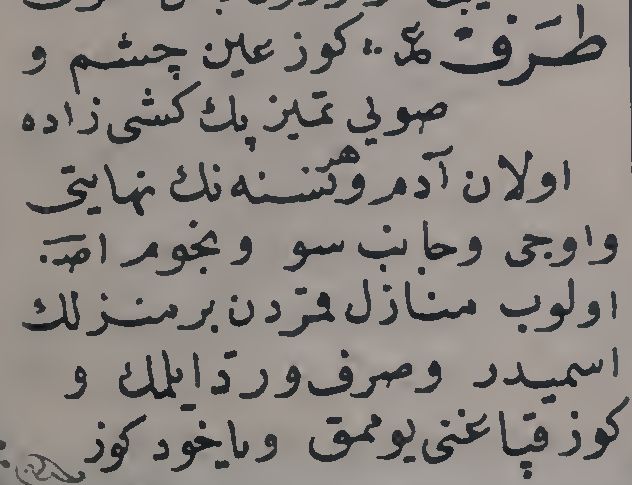 طَرَف عر كوز عين چشم و
صويي تميز پك كشى زاده
اولان آدم و هر نسنه نك نهايتى
و اوجى و جانب سو و نجوم
اولوب منازل قمردن بر منزلك
اسميدر و صرف و ردّ ايلمك و
كوز قپاغنى يوممق و ياخود كوز